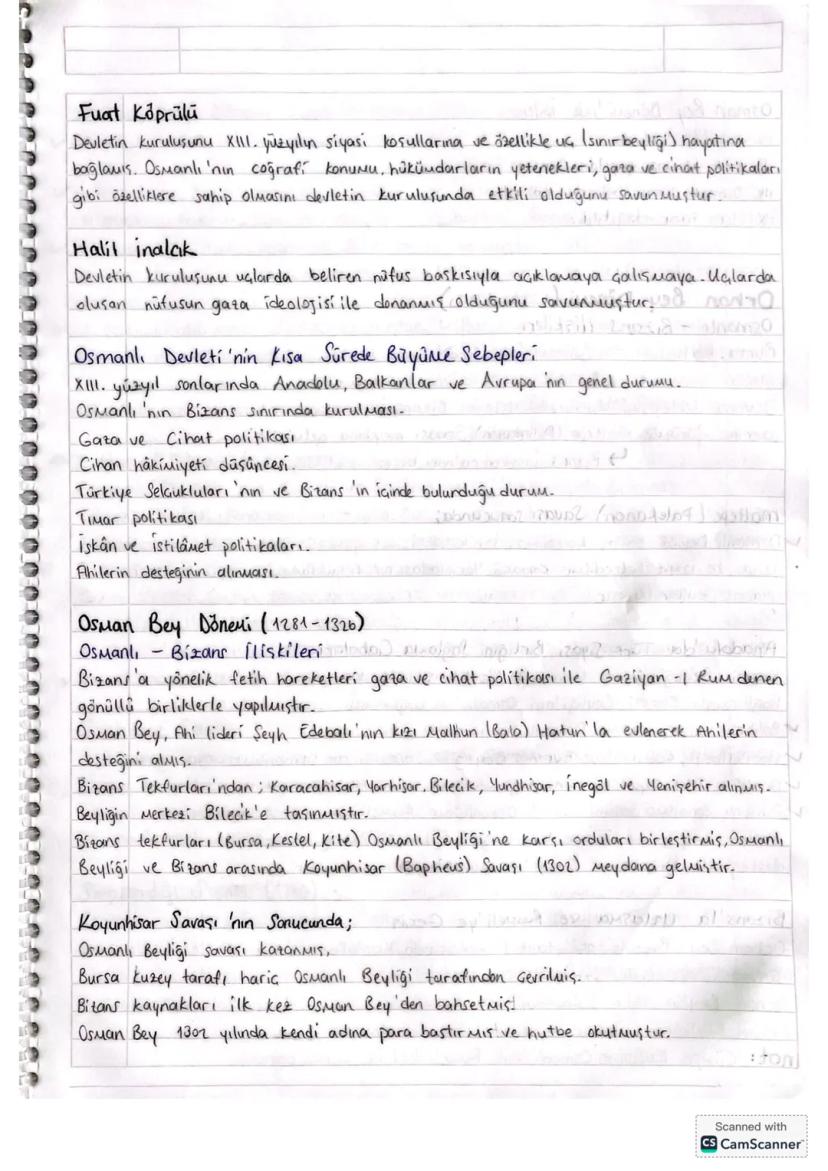 Fuat Köprülü
Devletin kuruluşunu XIII. yüzyılın siyasi koşullarına ve özellikle uç (sınır beyliği) hayatına
bağlamış. Osmanlı'nın coğrafi konumu, hükümdarların yetenekleri, gaza ve cihat politikaları
gibi özelliklere sahip olmasını devletin kuruluşunda etkili olduğunu savunmuştur.
Halil İnalcık
Devletin kuruluşunu uçlarda beliren nüfus baskısıyla açıklamaya çalışmaya. Uçlarda
oluşan nüfusun gaza ideolojisi ile donanmış olduğunu savunmuştur.
Osmanlı Devleti'nin Kısa Sürede Büyüme Sebepleri
XIII. yüzyıl sonlarında Anadolu, Balkanlar ve Avrupa'nın genel durumu.
Osmanlı'nın Bizans sınırında kurulması.
Gaza ve Cihat politikası
Cihan hâkimiyeti düşüncesi.
Türkiye Selçukluları'nın ve Bizans'ın içinde bulunduğu durum.
Tımar politikası
İskân ve istilâmet politikaları.
Ahilerin desteğinin alınması.
Osman Bey Dönemi (1281-1326)
Osmanlı - Bizans İlişkileri
Bizans'a yönelik fetih hareketleri gaza ve cihat politikası ile Gaziyan-ı Rum denen
gönüllü birliklerle yapılmıştır.
Osman Bey, Ahi lideri Şeyh Edebalı'nın kızı Malhun (Bala) Hatun'la evlenerek Ahilerin
desteğini almış.
Bizans Tekfurları'ndan; Karacahisar, Yarhisar, Bilecik, Yundhisar, İnegöl ve Yenişehir alınmış.
Beyliğin merkezi Bilecik'e taşınmıştır.
Bizans tekfurları (Bursa, Kestel, Kite) Osmanlı Beyliği'ne karşı orduları birleştirmiş, Osmanlı
Beyliği ve Bizans arasında Koyunhisar (Bapheus) Savaşı (1302) meydana gelmiştir.
Koyunhisar Savaşı'nın Sonucunda;
Osmanlı Beyliği savaşı kazanmış,
Bursa kuzey tarafı hariç Osmanlı Beyliği tarafından çevrilmiş.
Bizans kaynakları ilk kez Osman Bey'den bahsetmiş.
Osman Bey 1302 yılında kendi adına para bastırmış ve hutbe okutmuştur.
Scanned with
CS CamScanner